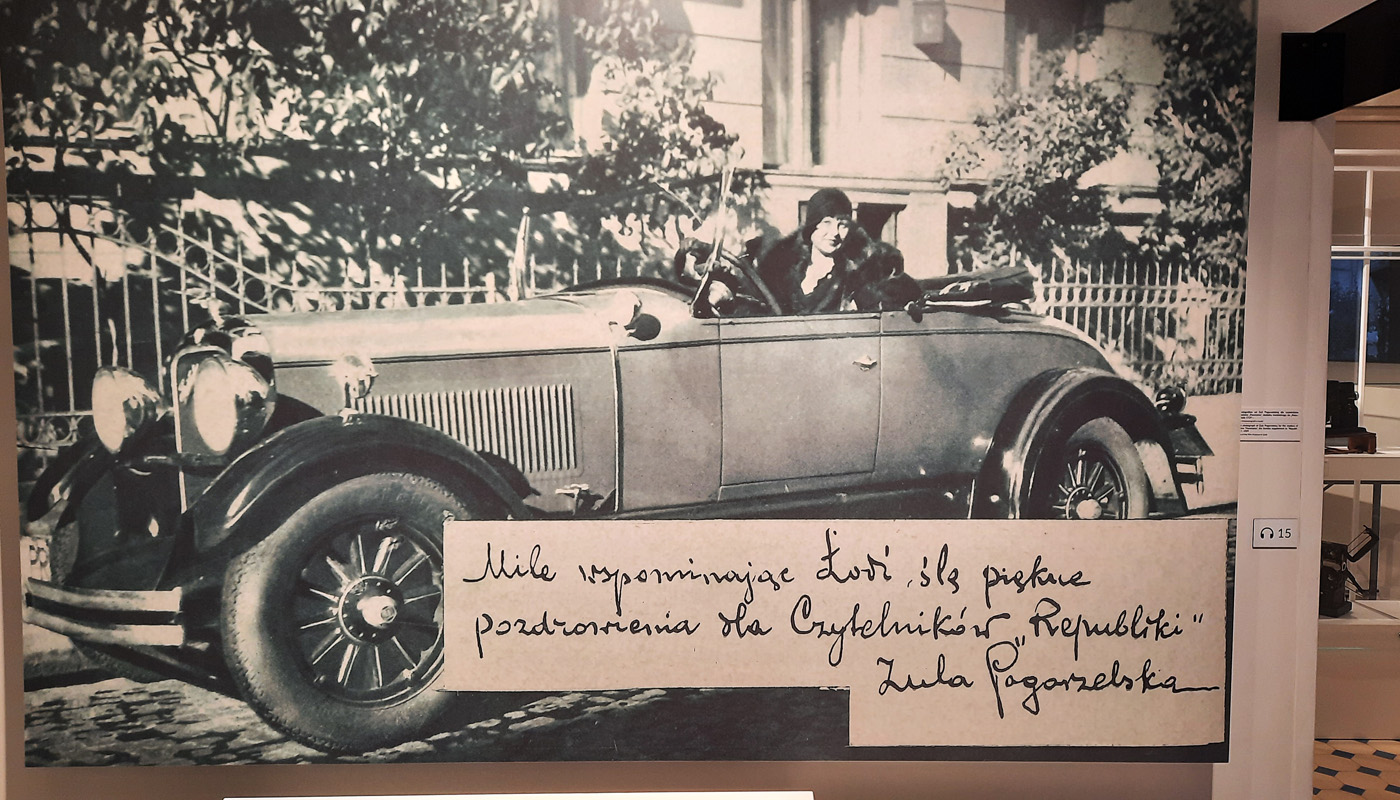 Mile wspominając Łódź, ślę piękne
pozdrowienia dla Czytelników „Republiki"
Zula Pogorzelska
15